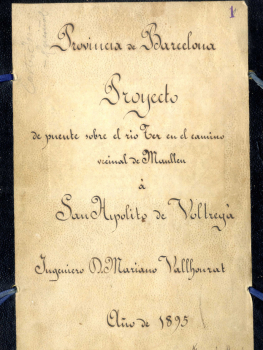 1
Provincia de Barcelona
Proyecto
de puente sobre el rio Ter en el camino
vecinal de Manlleu
á
San Hipolito de Voltregá
Ingeniero D. Mariano Vallhonrat
Año de 1895